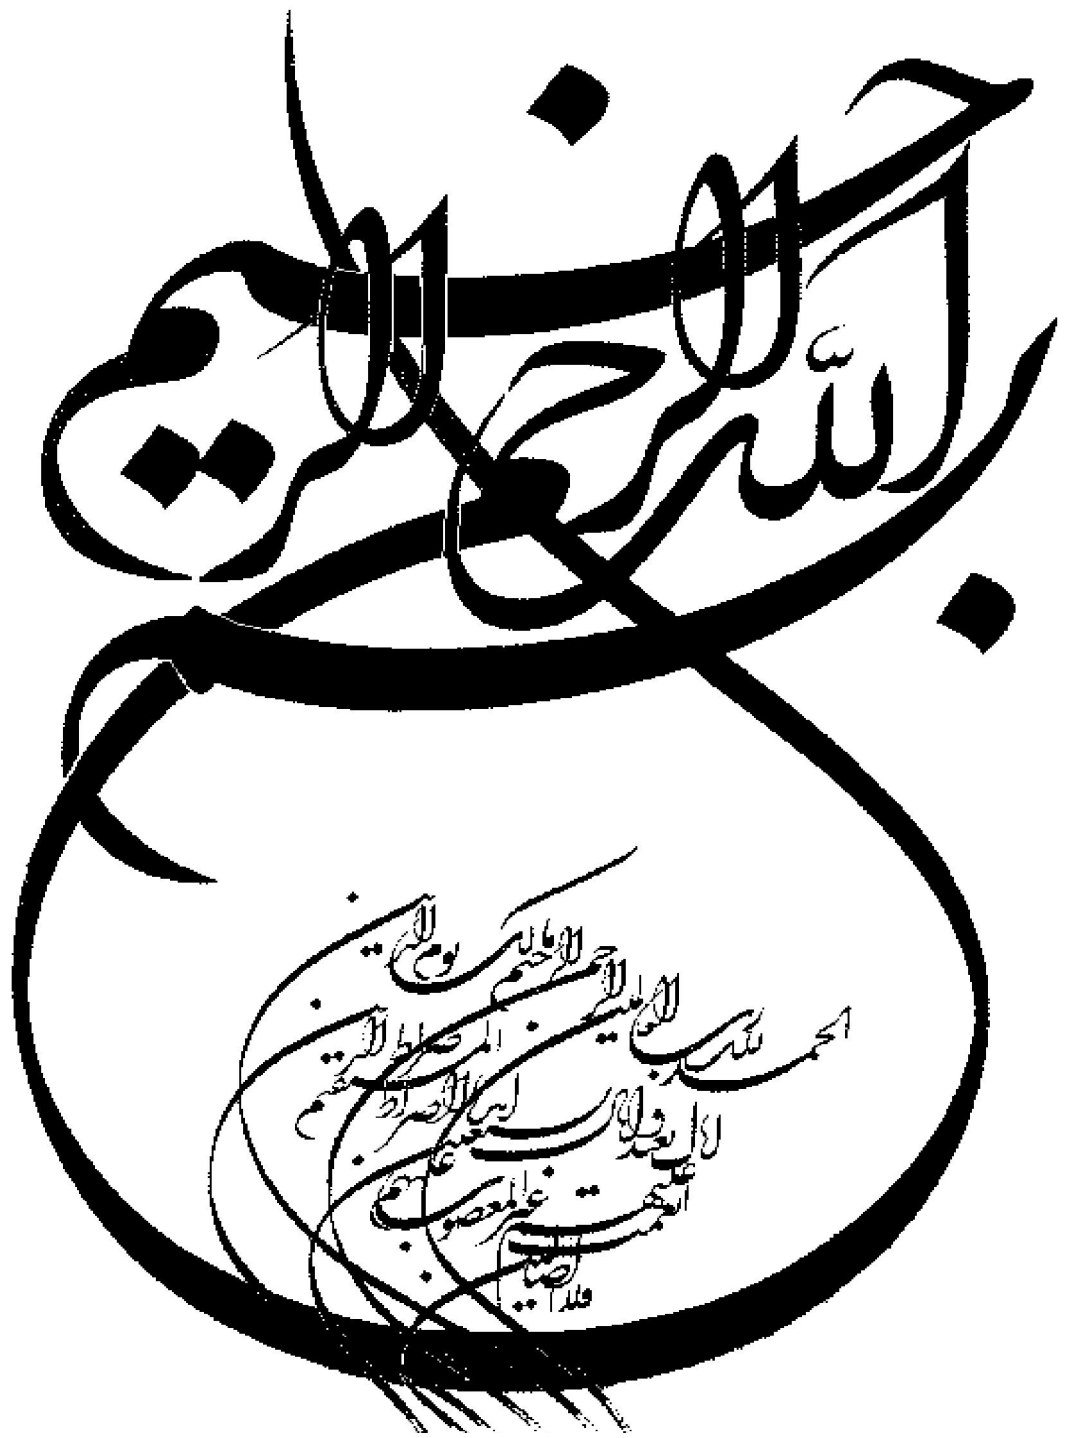 بسم الله الرحمن الرحيم
الحمد لله رب العالمين
الرحمن الرحيم
مالك يوم الدين
إياك نعبد وإياك نستعين
اهدنا الصراط المستقيم
صراط الذين أنعمت عليهم
غير المغضوب عليهم
ولا الضالين